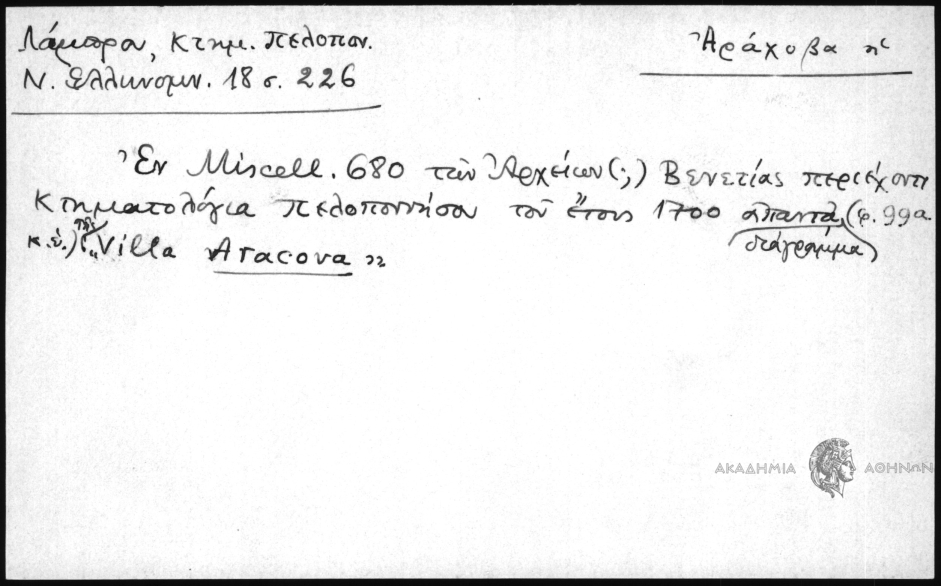 Λάμπρου, Κτημ. Πελοπον.
Ν. Ελληνομν. 18 σ. 226
Ἀράχοβα ἡ
Ἐν Miscell. 680 τῶν Ἀρχείων (;) Βενετίας περιέχοντι
Κτηματολόγια Πελοποννήσου τοῦ ἔτους 1700 ἀπαντᾷ (φ. 99α
διάγραμμα)
κ.ἑ.) τῆς „Villa Aracova"
ΑΚΑΔΗΜΙΑ ΑΘΗΝΩΝ